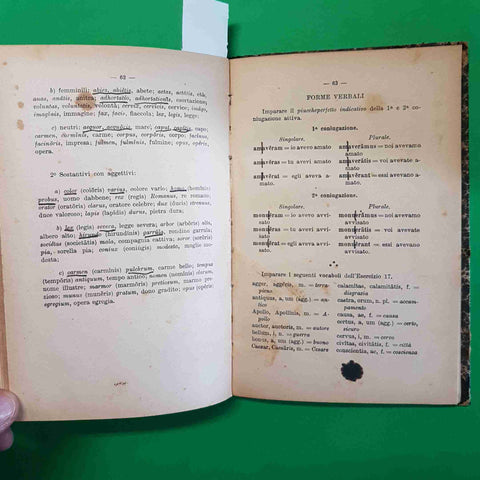 — 62 —
b) femminili; abies, abiĕtis, abete; aetas, aetātis, età;
adhortatio, adhortatiōnis, esortazione;
voluntas, voluntātis, volontà; cervix, cervīcis, cervice; indago,
imagine; fax, facis, fiaccola; lex, legis, legge.
c) neutri: aequor, aequŏris, mare; caput, capĭtis, capo;
carmen, carmĭnis, carme; corpus, corpŏris, corpo; facinus,
facinŏris, impresa; fulmen, fulmĭnis, fulmine; opus, opĕris,
opera.
2º Sostantivi con aggettivi:
a) color (colōris) varius, colore vario; homo (homĭnis)
probus, uomo dabbene; rex (regis) Romanus, re romano,
orator (oratōris) clarus, oratore celebre; dux (ducis) strenuus,
duce valoroso; lapis (lapĭdis) durus, pietra dura.
b) lex (legis) severa, legge severa; arbor (arbŏris) alta,
albero alto; hirundo (hirundĭnis) garrula, rondine garrula;
sociĕtas (societātis) mala, compagnia cattiva; soror (sorōris)
pia, sorella pia; coniux (coniŭgis) modesta, moglie mo-
desta;
c) carmen (carmĭnis) pulchrum, carme bello; tempus
(tempŏris) antiquum, tempo antico; nomen (nomĭnis) clarum,
nome illustre; marmor (marmŏris) pretiosum, marmo pre-
zioso; munus (munĕris) gratum, dono gradito; opus (opĕris)
egregium, opera egregia.
— 63 —
FORME VERBALI
Imparare il piuccheperfetto indicativo della 1ª e 2ª co-
niugazione attiva.
1ª coniugazione.
Singolare. Plurale.
amavĕram = io avevo amato amaverāmus = noi avevamo
amato
amavĕras = tu avevi amato amaverātis = voi avevate a-
mato
amavĕrat = egli aveva a- amavĕrant = essi avevano a-
mato. mato.
2ª coniugazione.
Singolare. Plurale.
monuĕram = io avevo avvi- monuerāmus = noi avevamo
sato avvisato
monuĕras = tu avevi avvi- monuerātis = voi avevate av-
sato visato
monuĕrat = egli aveva avvi- monuĕrant = essi avevano
sato. avvisato.
Imparare i seguenti vocaboli dell'Esercizio 17.
agger, aggĕris, m. = terra- calamitas, calamitātis, f. =
pieno disgrazia
antiquus, a, um (agg.) = an- castra, orum, n. pl. = accam-
tico pamento
Apollo, Apollĭnis, m. = A- causa, ae, f. = causa
pollo certus, a, um (agg.) = certo,
auctor, auctoris, m. = autore sicuro
bellum, i, n. = guerra cervus, i, m. = cervo
bonus, a, um (agg.) = buono civĭtas, civitātis, f. = città
Caesar, Caesăris, m. = Cesare conscientia, ae, f. = coscienza